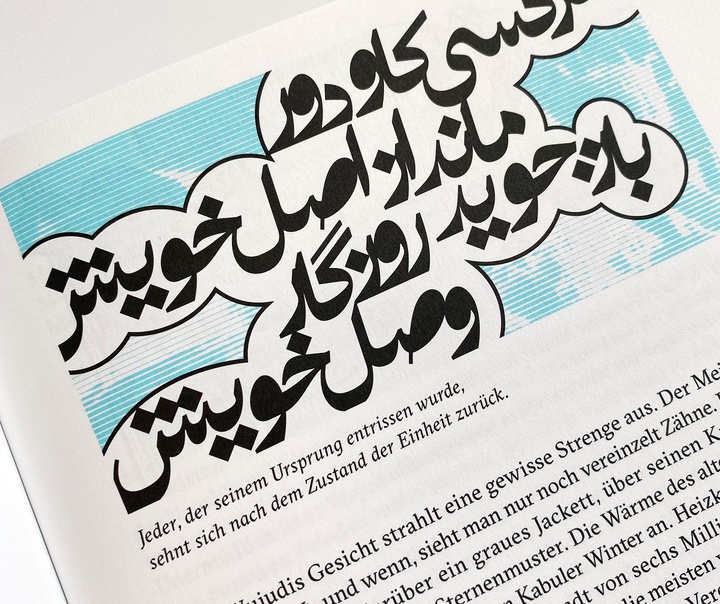 کسی کاو دور
ماند از اصل خویش
باز جوید روزگار
وصل خویش
Jeder, der seinem Ursprung entrissen wurde,
sehnt sich nach dem Zustand der Einheit zurück.
Wujudis Gesicht strahlt eine gewisse Strenge aus. Der
und wenn, sieht man nur noch vereinzelt Zähne.
ein graues Jackett, über seinen
Sternenmuster. Die Wärme des
Kabuler Winter an.
von sechs
die meisten